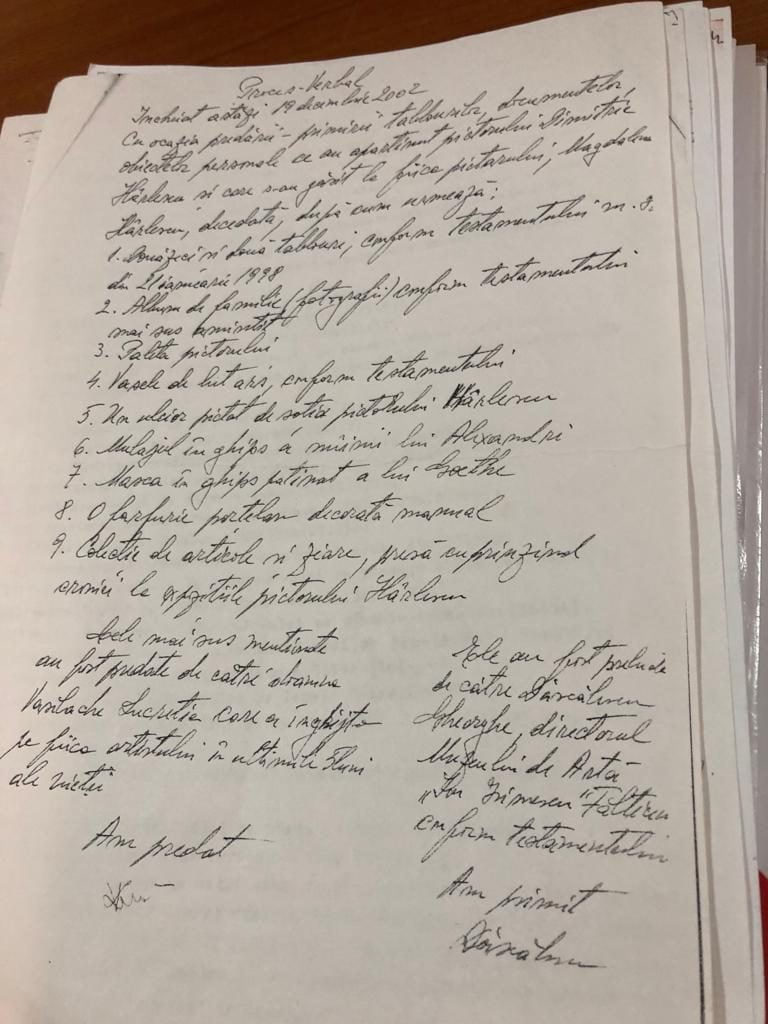 Proces-Verbal
Încheiat astăzi 19 decembrie 2002
Cu ocazia predării-primirii tablourilor, documentelor,
obiectelor personale ce au aparținut pictorului Dimitrie
Hârlescu și care s-au găsit la fiica pictorului, Magdalena
Hârlescu, decedată, după cum urmează:
1. Douăzeci și două tablouri, conform testamentului nr. 8.
din 21 ianuarie 1998
2. Album de familie (fotografii) conform testamentului
mai sus amintit
3. Paleta pictorului
4. Vasele de lut ars, conform testamentului
5. Un ulcior pictat de soția pictorului Hârlescu
6. Mulajul în ghips a mîinii lui Alexandri
7. Masca în ghips patinat a lui Goethe
8. O farfurie porțelan decorată manual
9. Colecție de articole și ziare, presă cuprinzînd
cronici la expozițiile pictorului Hârlescu
Cele mai sus menționate
au fost predate de către doamna
Vasilache Lucreția care a îngrijit-o
pe fiica artistului în ultimele luni
ale vieții
Am predat
Ele au fost preluate
de către Dăscălescu
Gheorghe, directorul
Muzeului de Artă
„Ion Irimescu" Fălticeni
conform testamentului
Am primit
Dăscălescu